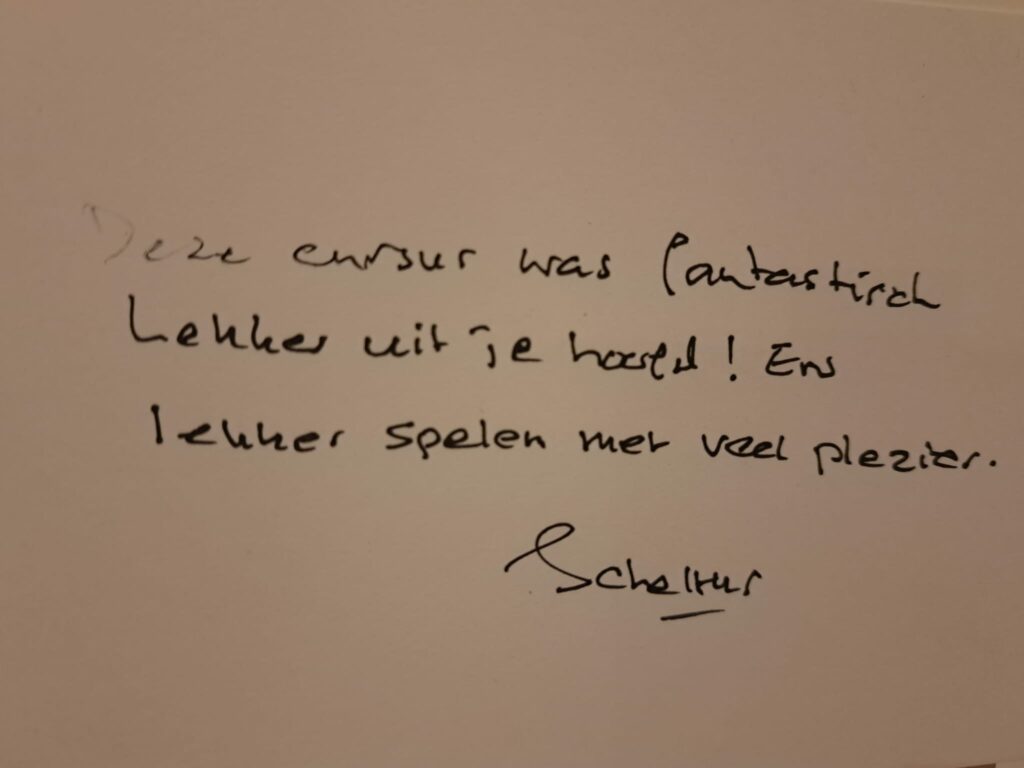 Deze cursus was fantastisch
Lekker uit je hoofd! En
lekker spelen met veel plezier.